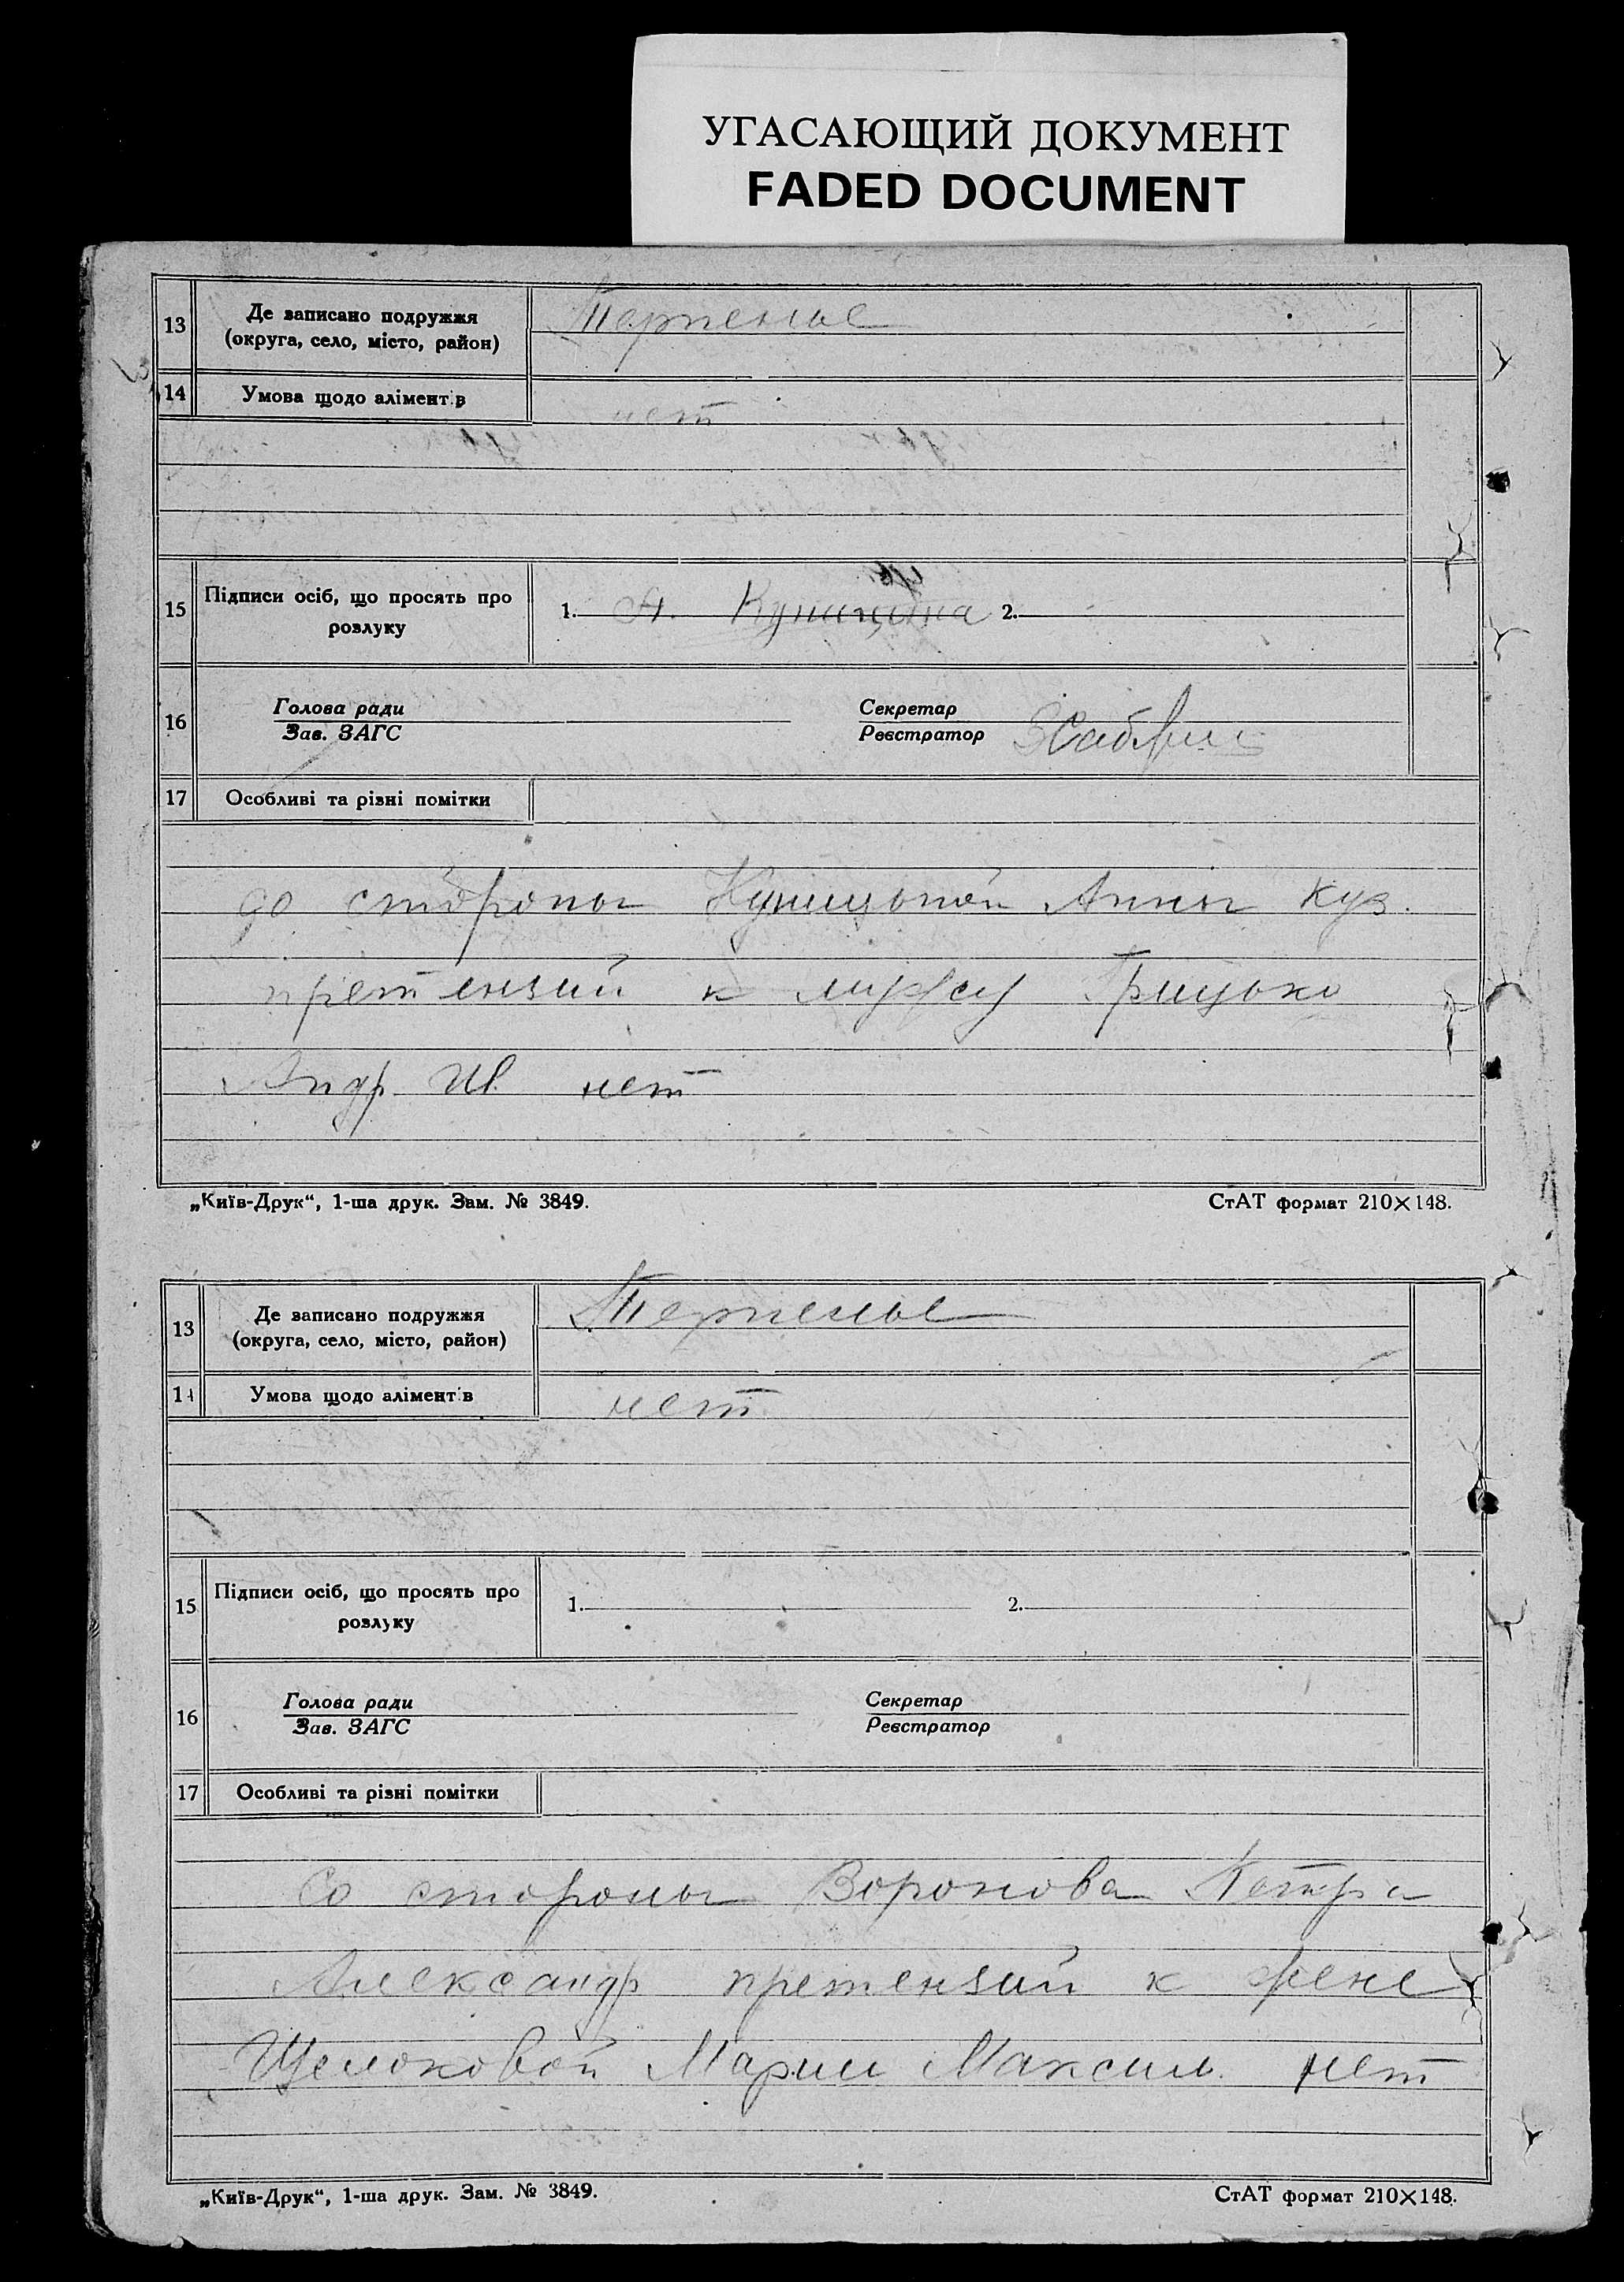 УГАСАЮЩИЙ ДОКУМЕНТ
FADED DOCUMENT
13 Де записано подружжя
(округа, село, місто, район)
Терпенье
14 Умова щодо аліментів
нет
15 Підписи осіб, що просять про
розлуку
1. А. 2.
16 Голова ради
Зав. ЗАГС
Секретар
Реєстратор
17 Особливі та різні помітки
со стороны Анны Куз.
претензий к мужу Грицько
Андр. Ив. нет
„Київ-Друк“, 1-ша друк. Зам. № 3849. СтАТ формат 210×148.
13 Де записано подружжя
(округа, село, місто, район)
Терпенье
14 Умова щодо аліментів
нет
15 Підписи осіб, що просять про
розлуку
1. 2.
16 Голова ради
Зав. ЗАГС
Секретар
Реєстратор
17 Особливі та різні помітки
Со стороны Воронова Петра
Александр претензий к жене
Щелоковой Марии Максим. нет
„Київ-Друк“, 1-ша друк. Зам. № 3849. СтАТ формат 210×148.